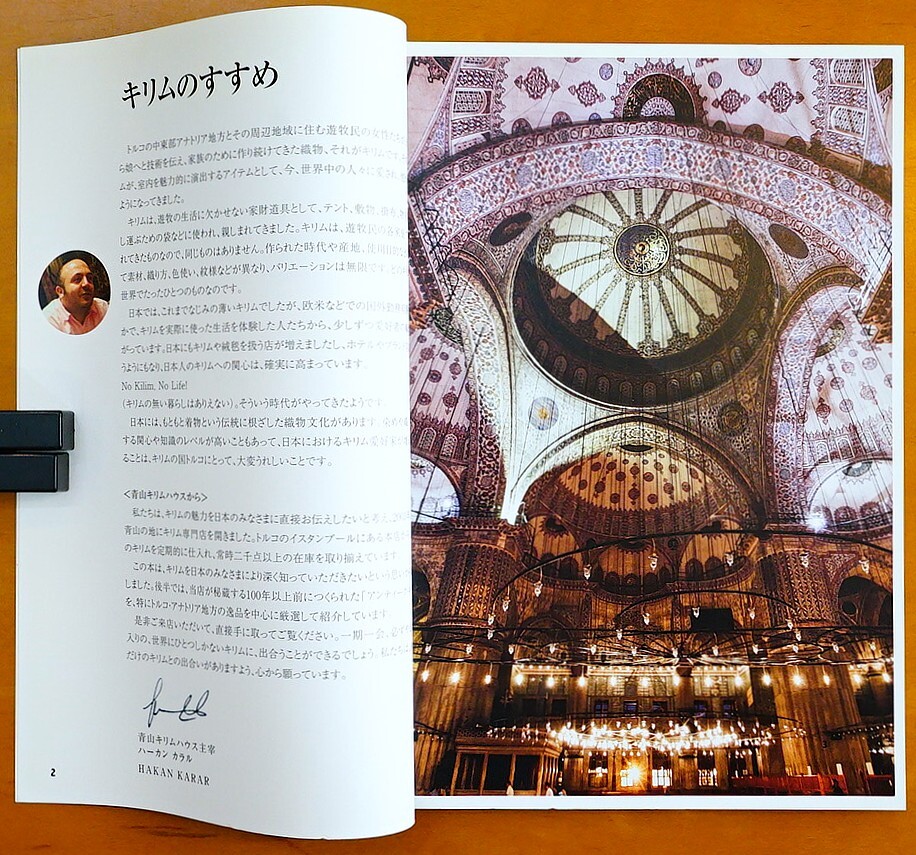 キリムのすすめ
トルコの中東部アナトリア地方とその周辺地域に住む遊牧民の女性た
ら娘へと技術を伝え、家族のために作り続けてきた織物、それがキリムです。
ムが、室内を魅力的に演出するアイテムとして、今、世界中の人々に愛され
ようになってきました。
キリムは、遊牧の生活に欠かせない家財道具として、テント、敷物、
し運ぶための袋などに使われ、親しまれてきました。キリムは、遊牧民の各
れてきたもので、同じものはありません。作られた時代や産地、使用目的
て素材、織り方、色使い、紋様などが異なり、バリエーションは無限です。
世界でたったひとつのものなのです。
日本では、これまでなじみの薄いキリムでしたが、欧米などでの国外勤務
かで、キリムを実際に使った生活を体験した人たちから、少しずつ愛好者
がっています。日本にもキリムや絨毯を扱う店が増えましたし、ホテルや
うようにもなり、日本人のキリムへの関心は、確実に高まっています。
No Kilim, No Life!
(キリムの無い暮らしはありえない)。そういう時代がやってきたようです。
日本には、もともと着物という伝統に根ざした織物文化があります。染め
する関心や知識のレベルが高いこともあって、日本におけるキリム愛好
ることは、キリムの国トルコにとって、大変うれしいことです。
<青山キリムハウスから>
私たちは、キリムの魅力を日本のみなさまに直接お伝えしたいと考え、
青山の地にキリム専門店を開きました。トルコのイスタンブールにある
のキリムを定期的に仕入れ、常時二千点以上の在庫を取り揃えています。
この本は、キリムを日本のみなさまにより深く知っていただきたいという思い
しました。後半では、当店が秘蔵する100年以上前につくられた「アンティー
を、特にトルコ・アナトリア地方の逸品を中心に厳選して紹介しています。
是非ご来店いただいて、直接手に取ってご覧ください。一期一会。必ず
入りの、世界にひとつしかないキリムに、出合うことができるでしょう。私たち
だけのキリムとの出合いがありますよう、心から願っています。
青山キリムハウス主宰
ハーカン カラル
HAKAN KARAR
2